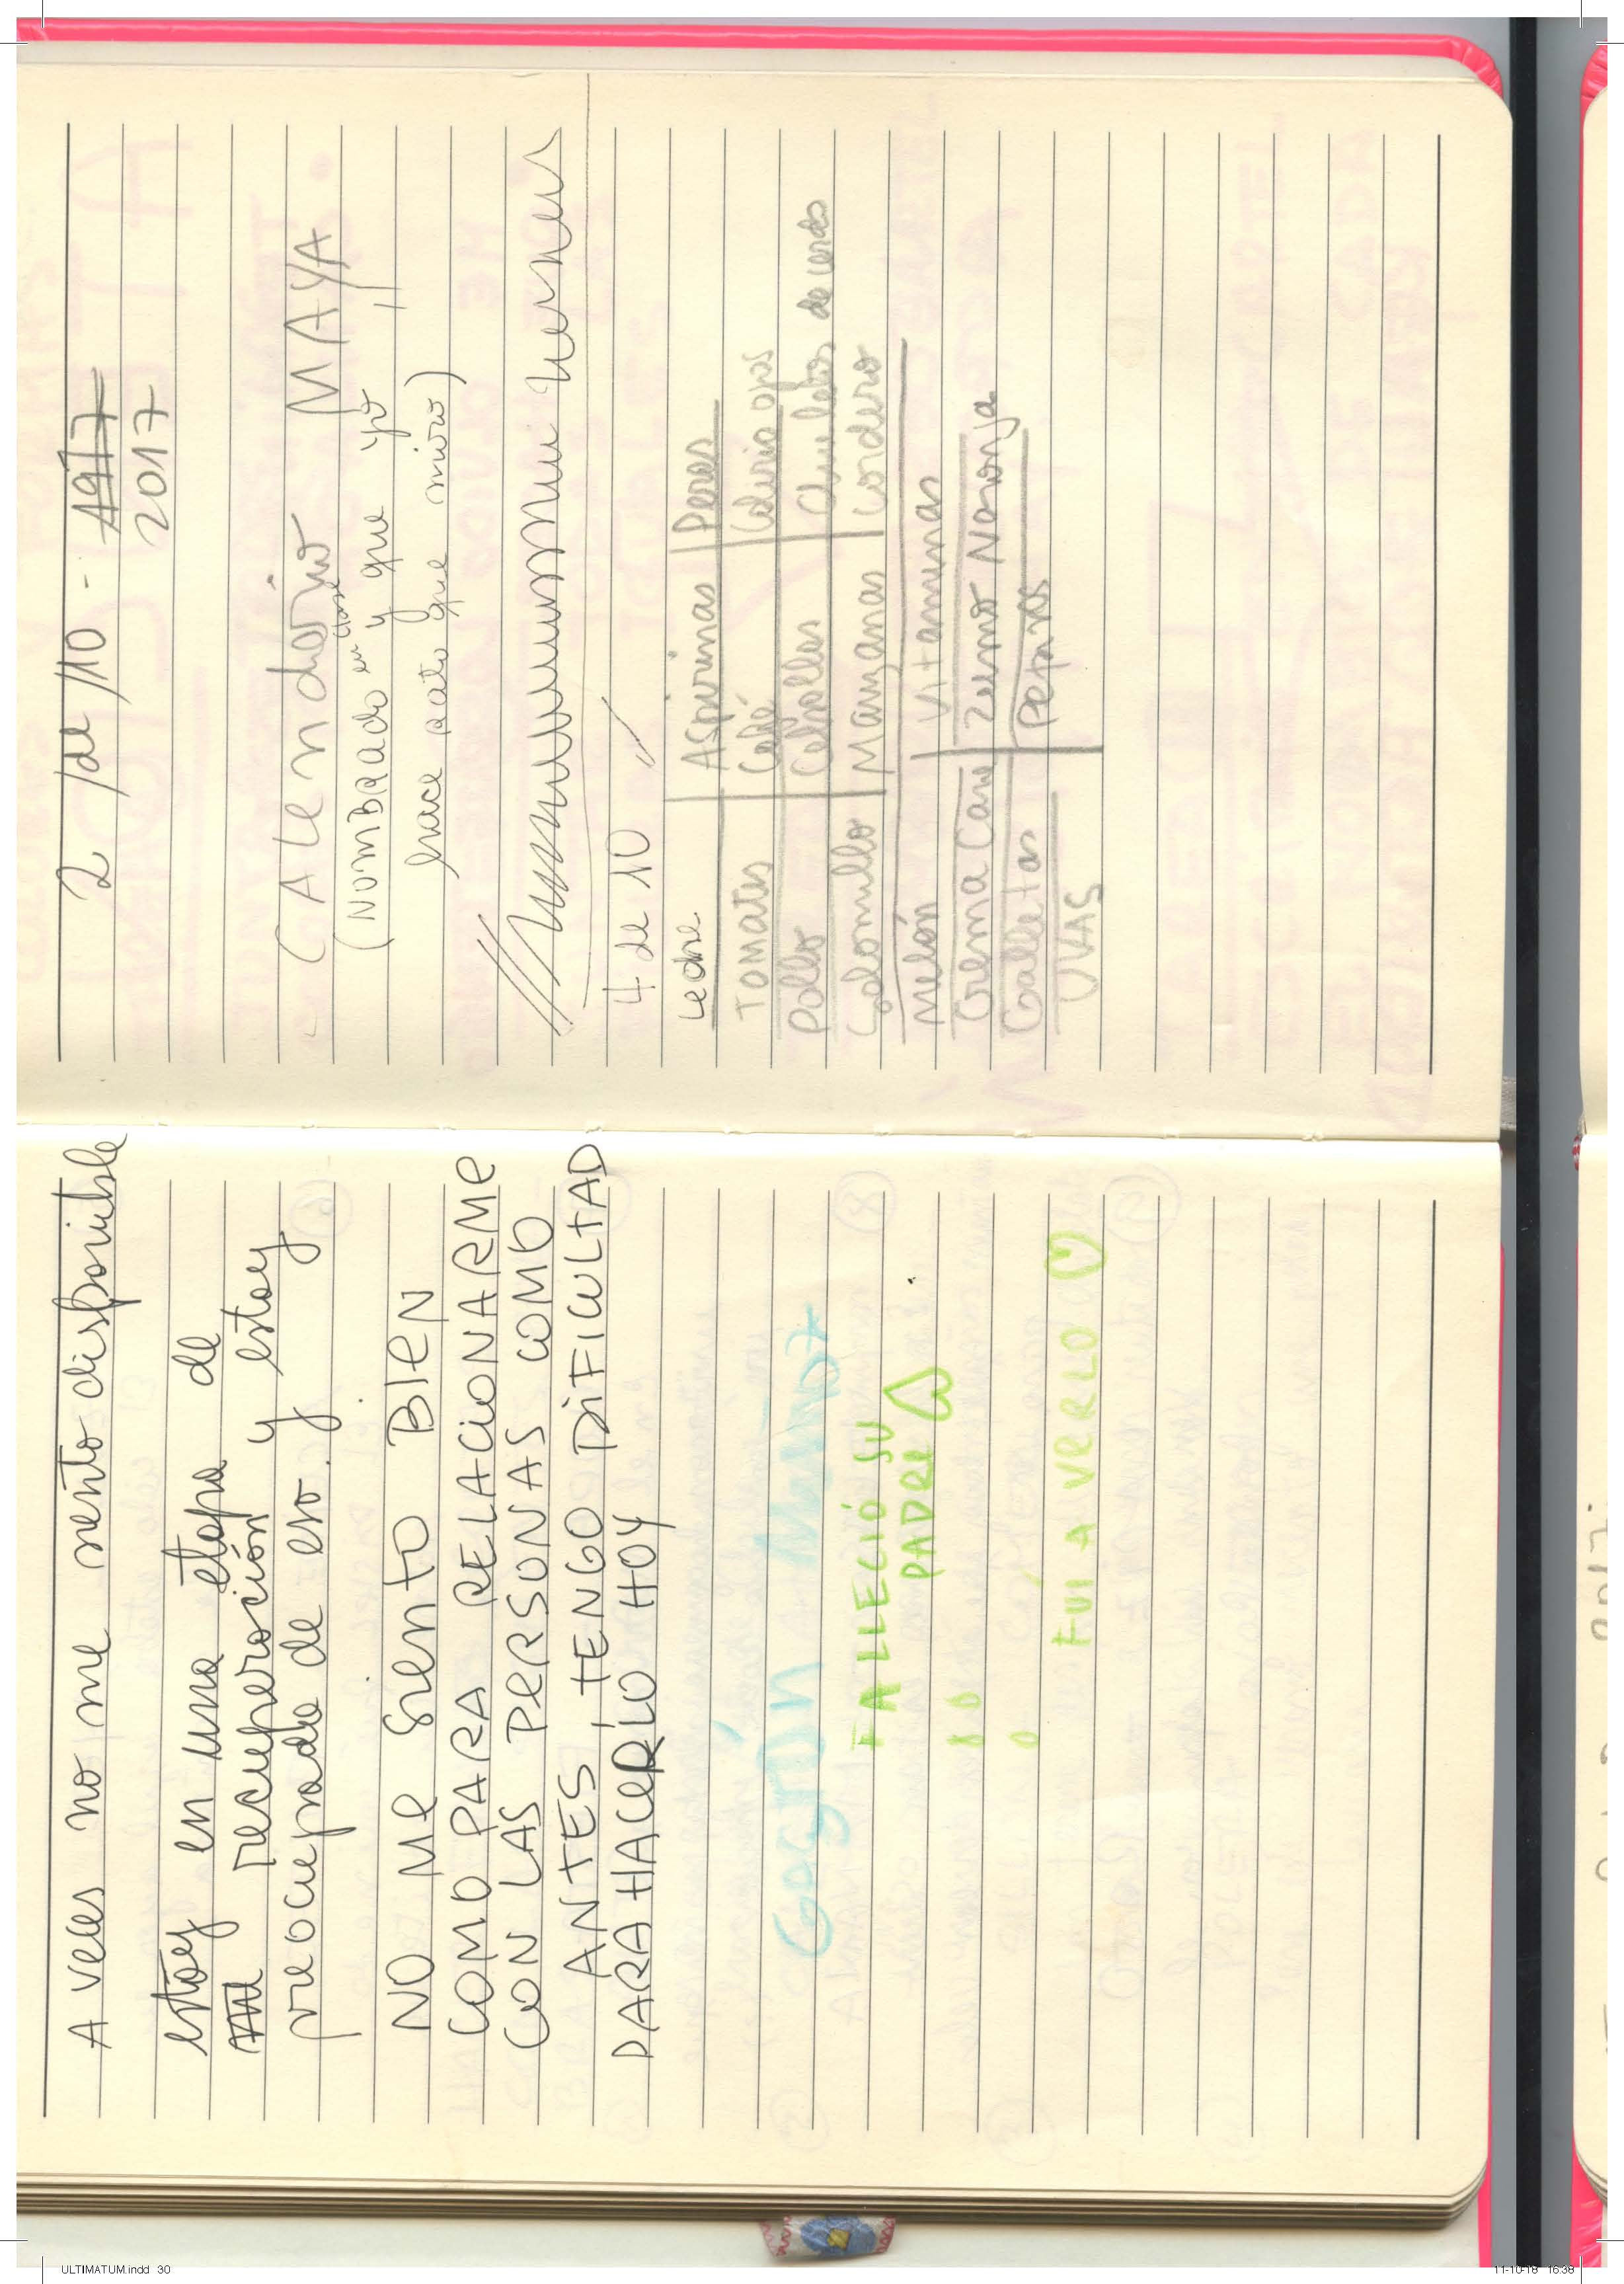 A veces no me siento disponible
estoy en una etapa de
recuperación y estoy
preocupado de eso.
NO Me Siento BIeN
COMO PARA RELACIONARMe
CON LAS PeRSONAS COMO
ANTES, TENGO DIFICULTAD
PARA HACERLO HOY
GAGARIN
FALLECIÓ SU
PADRE
FUÍ A VERLO
2 /de /10 - 1917
2017
- CALendario MAYA
(NOMBRADO en clase y que yo
hace rato que miro)
4 de 10
Leche Aspirinas Peras
TOMATES Café Colirio ojos
Pollo Cebollas Chuletas de cerdo
Solomillo Manzanas Cordero
Melón Vitaminas
Crema Cara Zumo Naranja
Galletas Pepinos
UVAS
ULTIMATUM.indd 30
11-10-18 16:38